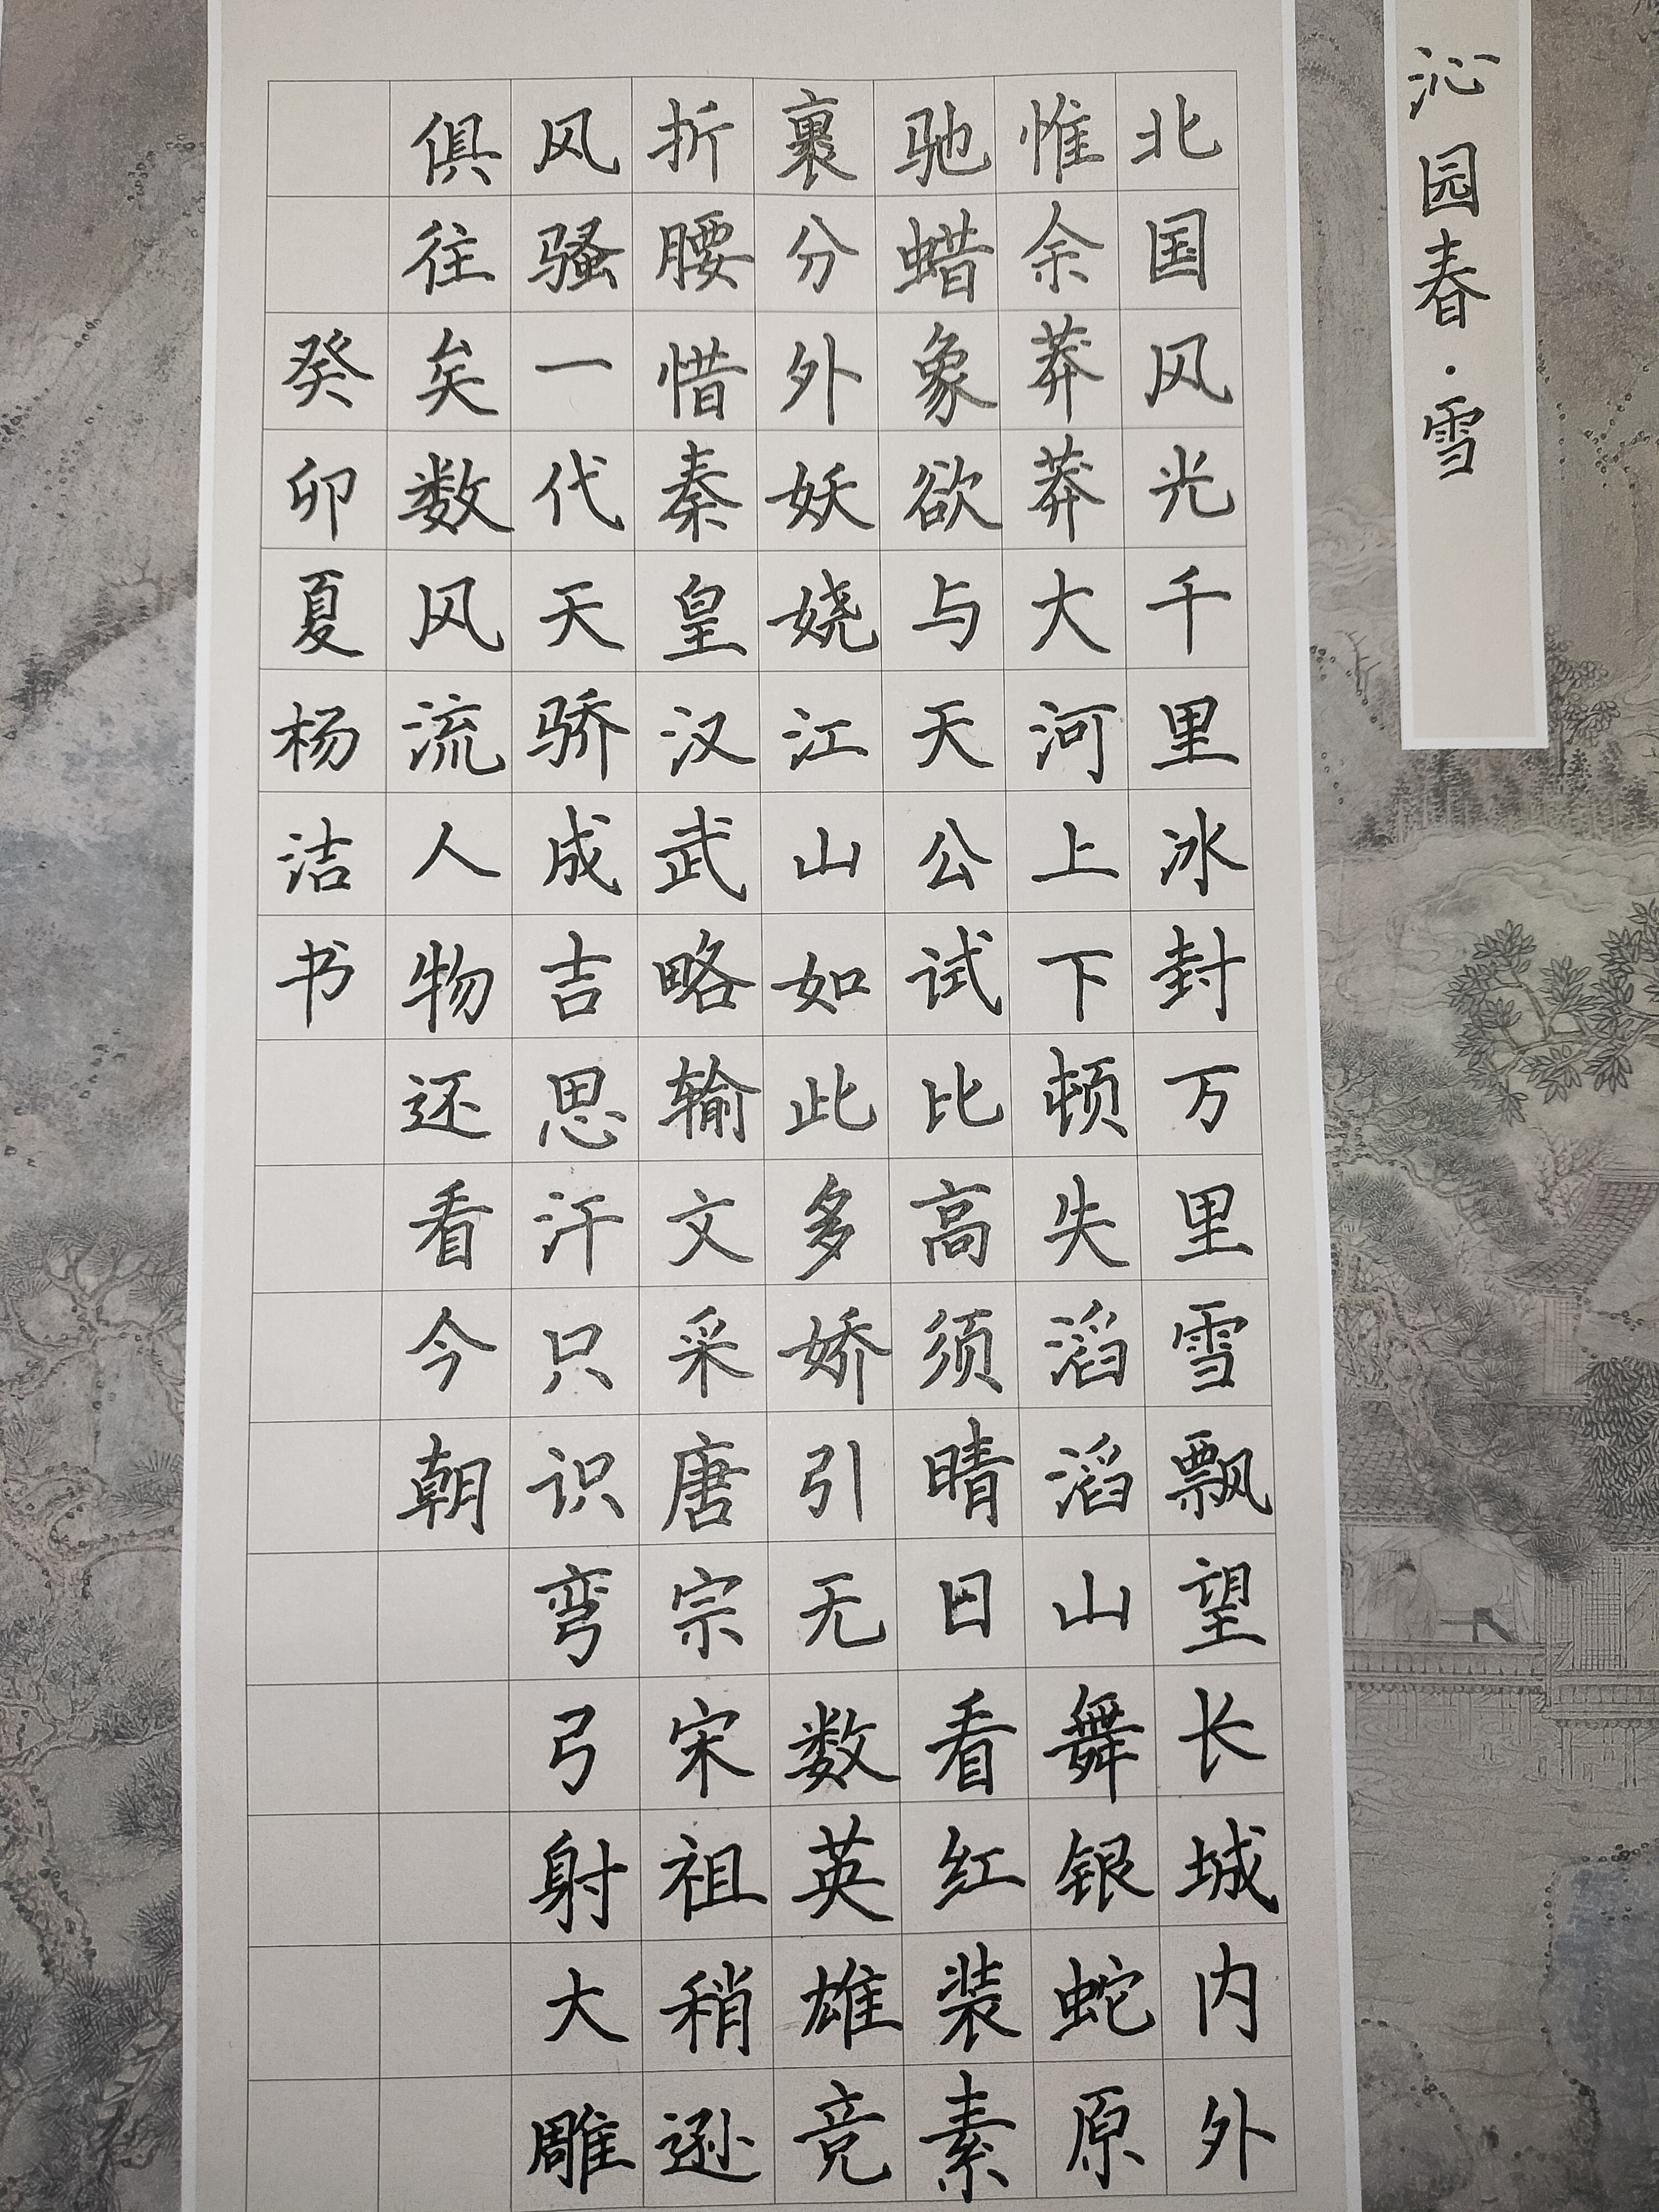 沁园春·雪
北国风光千里冰封万里雪飘望长城内外
惟余莽莽大河上下顿失滔滔山舞银蛇原
驰蜡象欲与天公试比高须晴日看红装素
裹分外妖娆江山如此多娇引无数英雄竞
折腰惜秦皇汉武略输文采唐宗宋祖稍逊
风骚一代天骄成吉思汗只识弯弓射大雕
俱往矣数风流人物还看今朝
癸卯夏杨洁书